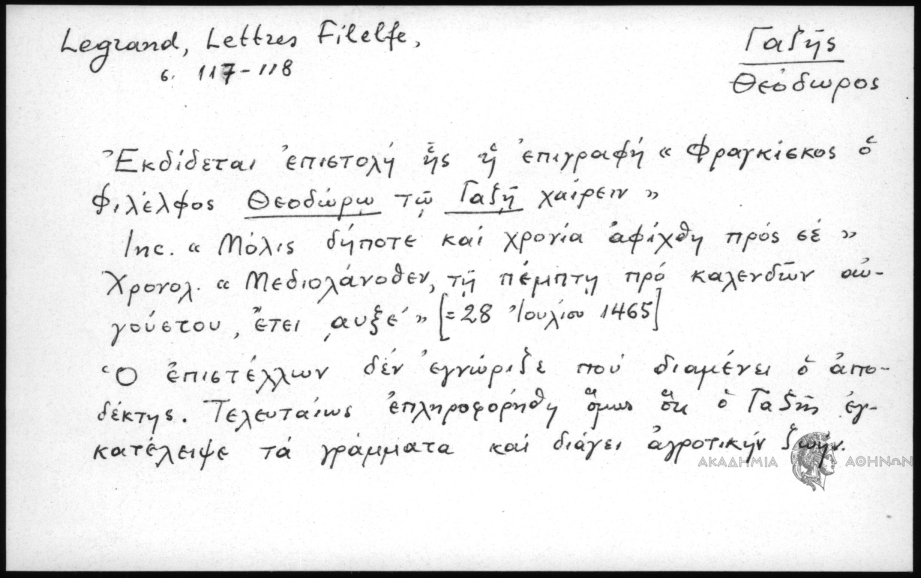 Legrand, Lettres Filelfe,
σ. 117-118
Γαζῆς
Θεόδωρος
Ἐκδίδεται ἐπιστολή ἧς ἡ ἐπιγραφή « Φραγκίσκος ὁ
Φιλέλφος Θεοδώρῳ τῷ Γαζῇ χαίρειν »
Inc. « Μόλις δήποτε καί χρονία ἀφίχθη πρός σέ »
Χρονολ. « Μεδιολάνοθεν, τῇ πέμπτῃ πρό καλενδῶν αὐ-
γούστου, ἔτει ͵αυξε´ » [= 28 Ἰουλίου 1465]
Ὁ ἐπιστέλλων δέν ἐγνώριζε ποῦ διαμένει ὁ ἀπο-
δέκτης. Τελευταίως ἐπληροφορήθη ὅμως ὅτι ὁ Γαζῆς ἐγ-
κατέλειψε τά γράμματα καί διάγει ἀγροτικήν ζωήν.
ΑΚΑΔΗΜΙΑ ΑΘΗΝΩΝ